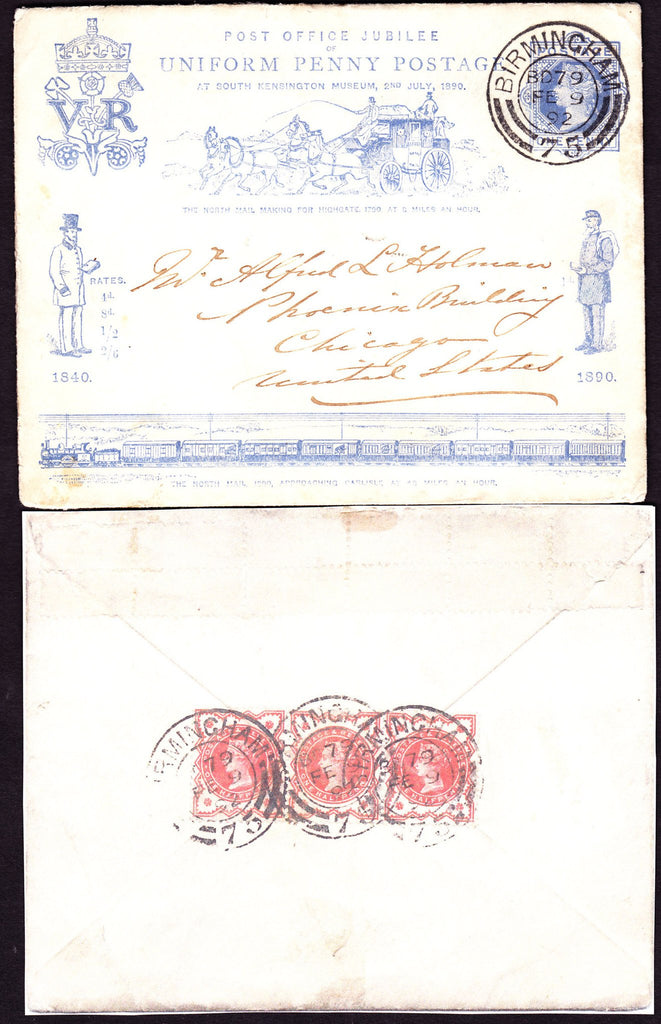 POST OFFICE JUBILEE
OF
UNIFORM PENNY POSTAGE
AT SOUTH KENSINGTON MUSEUM, 2ND JULY, 1890.
V R
BIRMINGHAM
BD79
FE 9
92
75
THE NORTH MAIL MAKING FOR HIGHGATE 1790 AT 8 MILES AN HOUR.
Mr. Alfred L Holman
Phoenix Building
Chicago
United States
RATES.
1d.
8d.
1/2
2/6
1840.
1890.
THE NORTH MAIL, 1890, APPROACHING CARLISLE AT 48 MILES AN HOUR.
RMINGHAM
79
9
75
RMINGHA
79
FE
75
RMINGHAM
79
FE 9
75